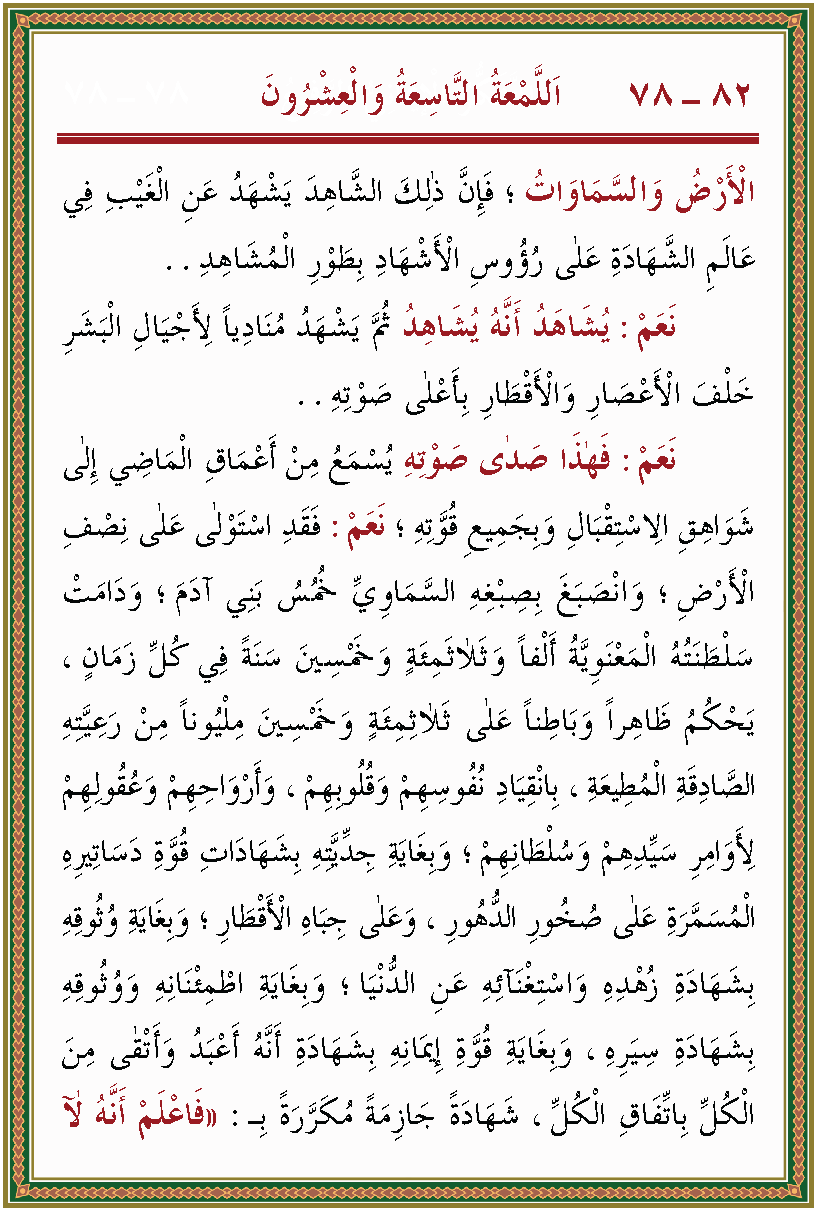 ٨٢ ــ ٧٨ اَللَّمْعَةُ التَّاسِعَةُ وَالْعِشْرُونَ
الْأَرْضُ وَالسَّمَاوَاتُ ؛ فَإِنَّ ذٰلِكَ الشَّاهِدَ يَشْهَدُ عَنِ الْغَيْبِ فِي
عَالَمِ الشَّهَادَةِ عَلٰى رُؤُوسِ الْأَشْهَادِ بِطَوْرِ الْمُشَاهِدِ . .
نَعَمْ : يُشَاهَدُ أَنَّهُ يُشَاهِدُ ثُمَّ يَشْهَدُ مُنَادِياً لِأَجْيَالِ الْبَشَرِ
خَلْفَ الْأَعْصَارِ وَالْأَقْطَارِ بِأَعْلٰى صَوْتِهِ . .
نَعَمْ : فَهٰذَا صَدٰى صَوْتِهِ يُسْمَعُ مِنْ أَعْمَاقِ الْمَاضِي إِلٰى
شَوَاهِقِ الِاسْتِقْبَالِ وَبِجَمِيعِ قُوَّتِهِ ؛ نَعَمْ : فَقَدِ اسْتَوْلٰى عَلٰى نِصْفِ
الْأَرْضِ ؛ وَانْصَبَغَ بِصِبْغِهِ السَّمَاوِيِّ خُمُسُ بَنِي آدَمَ ؛ وَدَامَتْ
سَلْطَنَتُهُ الْمَعْنَوِيَّةُ أَلْفاً وَثَلٰاثَمِئَةٍ وَخَمْسِينَ سَنَةً فِي كُلِّ زَمَانٍ ،
يَحْكُمُ ظَاهِراً وَبَاطِناً عَلٰى ثَلٰاثِمِئَةٍ وَخَمْسِينَ مِلْيُوناً مِنْ رَعِيَّتِهِ
الصَّادِقَةِ الْمُطِيعَةِ ، بِانْقِيَادِ نُفُوسِهِمْ وَقُلُوبِهِمْ ، وَأَرْوَاحِهِمْ وَعُقُولِهِمْ
لِأَوَامِرِ سَيِّدِهِمْ وَسُلْطَانِهِمْ ؛ وَبِغَايَةِ جِدِّيَّتِهِ بِشَهَادَاتِ قُوَّةِ دَسَاتِيرِهِ
الْمُسَمَّرَةِ عَلٰى صُخُورِ الدُّهُورِ ، وَعَلٰى جِبَاهِ الْأَقْطَارِ ؛ وَبِغَايَةِ وُثُوقِهِ
بِشَهَادَةِ زُهْدِهِ وَاسْتِغْنَآئِهِ عَنِ الدُّنْيَا ؛ وَبِغَايَةِ اطْمِئْنَانِهِ وَوُثُوقِهِ
بِشَهَادَةِ سِيَرِهِ ، وَبِغَايَةِ قُوَّةِ إِيمَانِهِ بِشَهَادَةِ أَنَّهُ أَعْبَدُ وَأَتْقٰى مِنَ
الْكُلِّ بِاتِّفَاقِ الْكُلِّ ، شَهَادَةً جَازِمَةً مُكَرَّرَةً بِـ : «فَاعْلَمْ أَنَّهُ لَآ